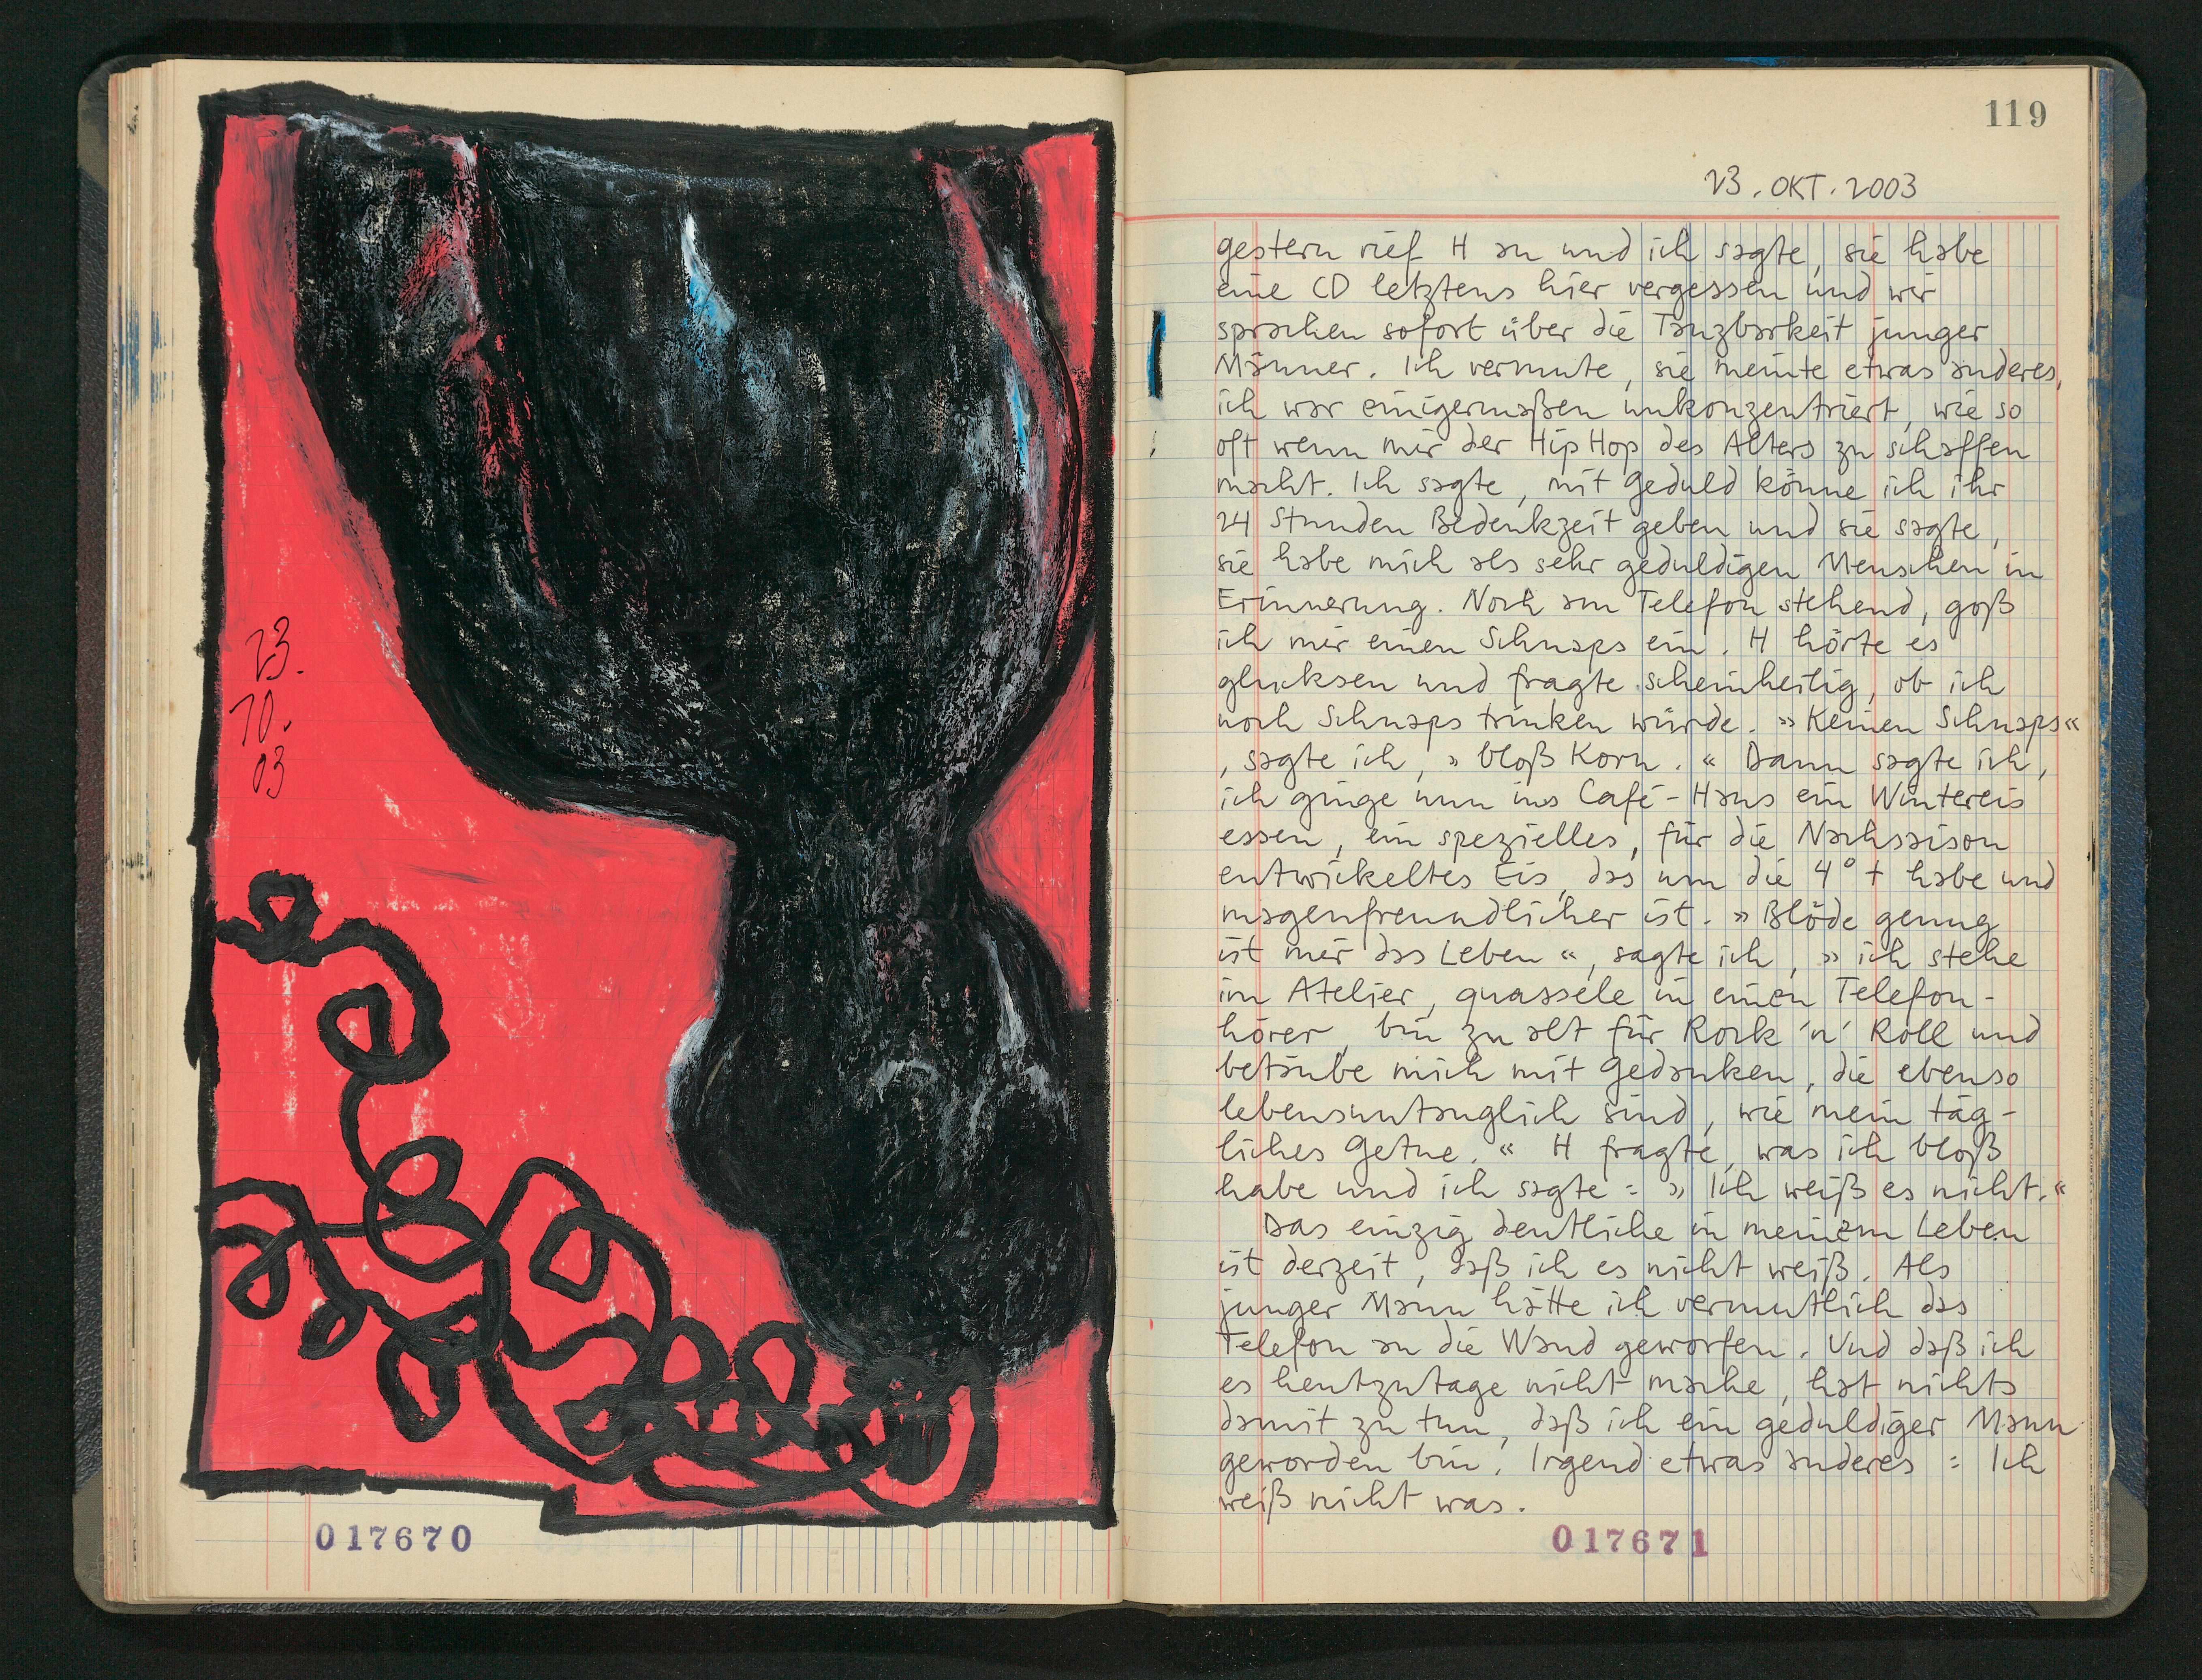 23.
10.
03
017670
119
23. OKT. 2003
gestern rief H an und ich sagte, sie habe
eine CD letztens hier vergessen und wir
sprachen sofort über die Tanzbarkeit junger
Männer. Ich vermute, sie meinte etwas anderes,
ich war einigermaßen unkonzentriert, wie so
oft wenn mir der Hip Hop des Alters zu schaffen
macht. Ich sagte, mit Geduld könne ich ihr
24 Stunden Bedenkzeit geben und sie sagte,
sie habe mich als sehr geduldigen Menschen in
Erinnerung. Noch am Telefon stehend, goß
ich mir einen Schnaps ein. H hörte es
glucksen und fragte scheinheilig, ob ich
noch Schnaps trinken würde. »Keinen Schnaps«
, sagte ich, »bloß Korn.« Dann sagte ich,
ich ginge nun ins Café-Haus ein Wintereis
essen, ein spezielles, für die Nachsaison
entwickeltes Eis, das um die 4° + habe und
magenfreundlicher ist. »Blöde genug
ist mir das Leben«, sagte ich, »ich stehe
im Atelier, quassele in einen Telefon-
hörer, bin zu alt für Rock 'n' Roll und
betäube mich mit Gedanken, die ebenso
lebensuntauglich sind, wie mein täg-
liches Getue.« H fragte, was ich bloß
habe und ich sagte: »Ich weiß es nicht.«
Das einzig deutliche in meinem Leben
ist derzeit, daß ich es nicht weiß. Als
junger Mann hätte ich vermutlich das
Telefon an die Wand geworfen. Und daß ich
es heutzutage nicht mache, hat nichts
damit zu tun, daß ich ein geduldiger Mann
geworden bin. Irgend etwas anderes: Ich
weiß nicht was.
017671